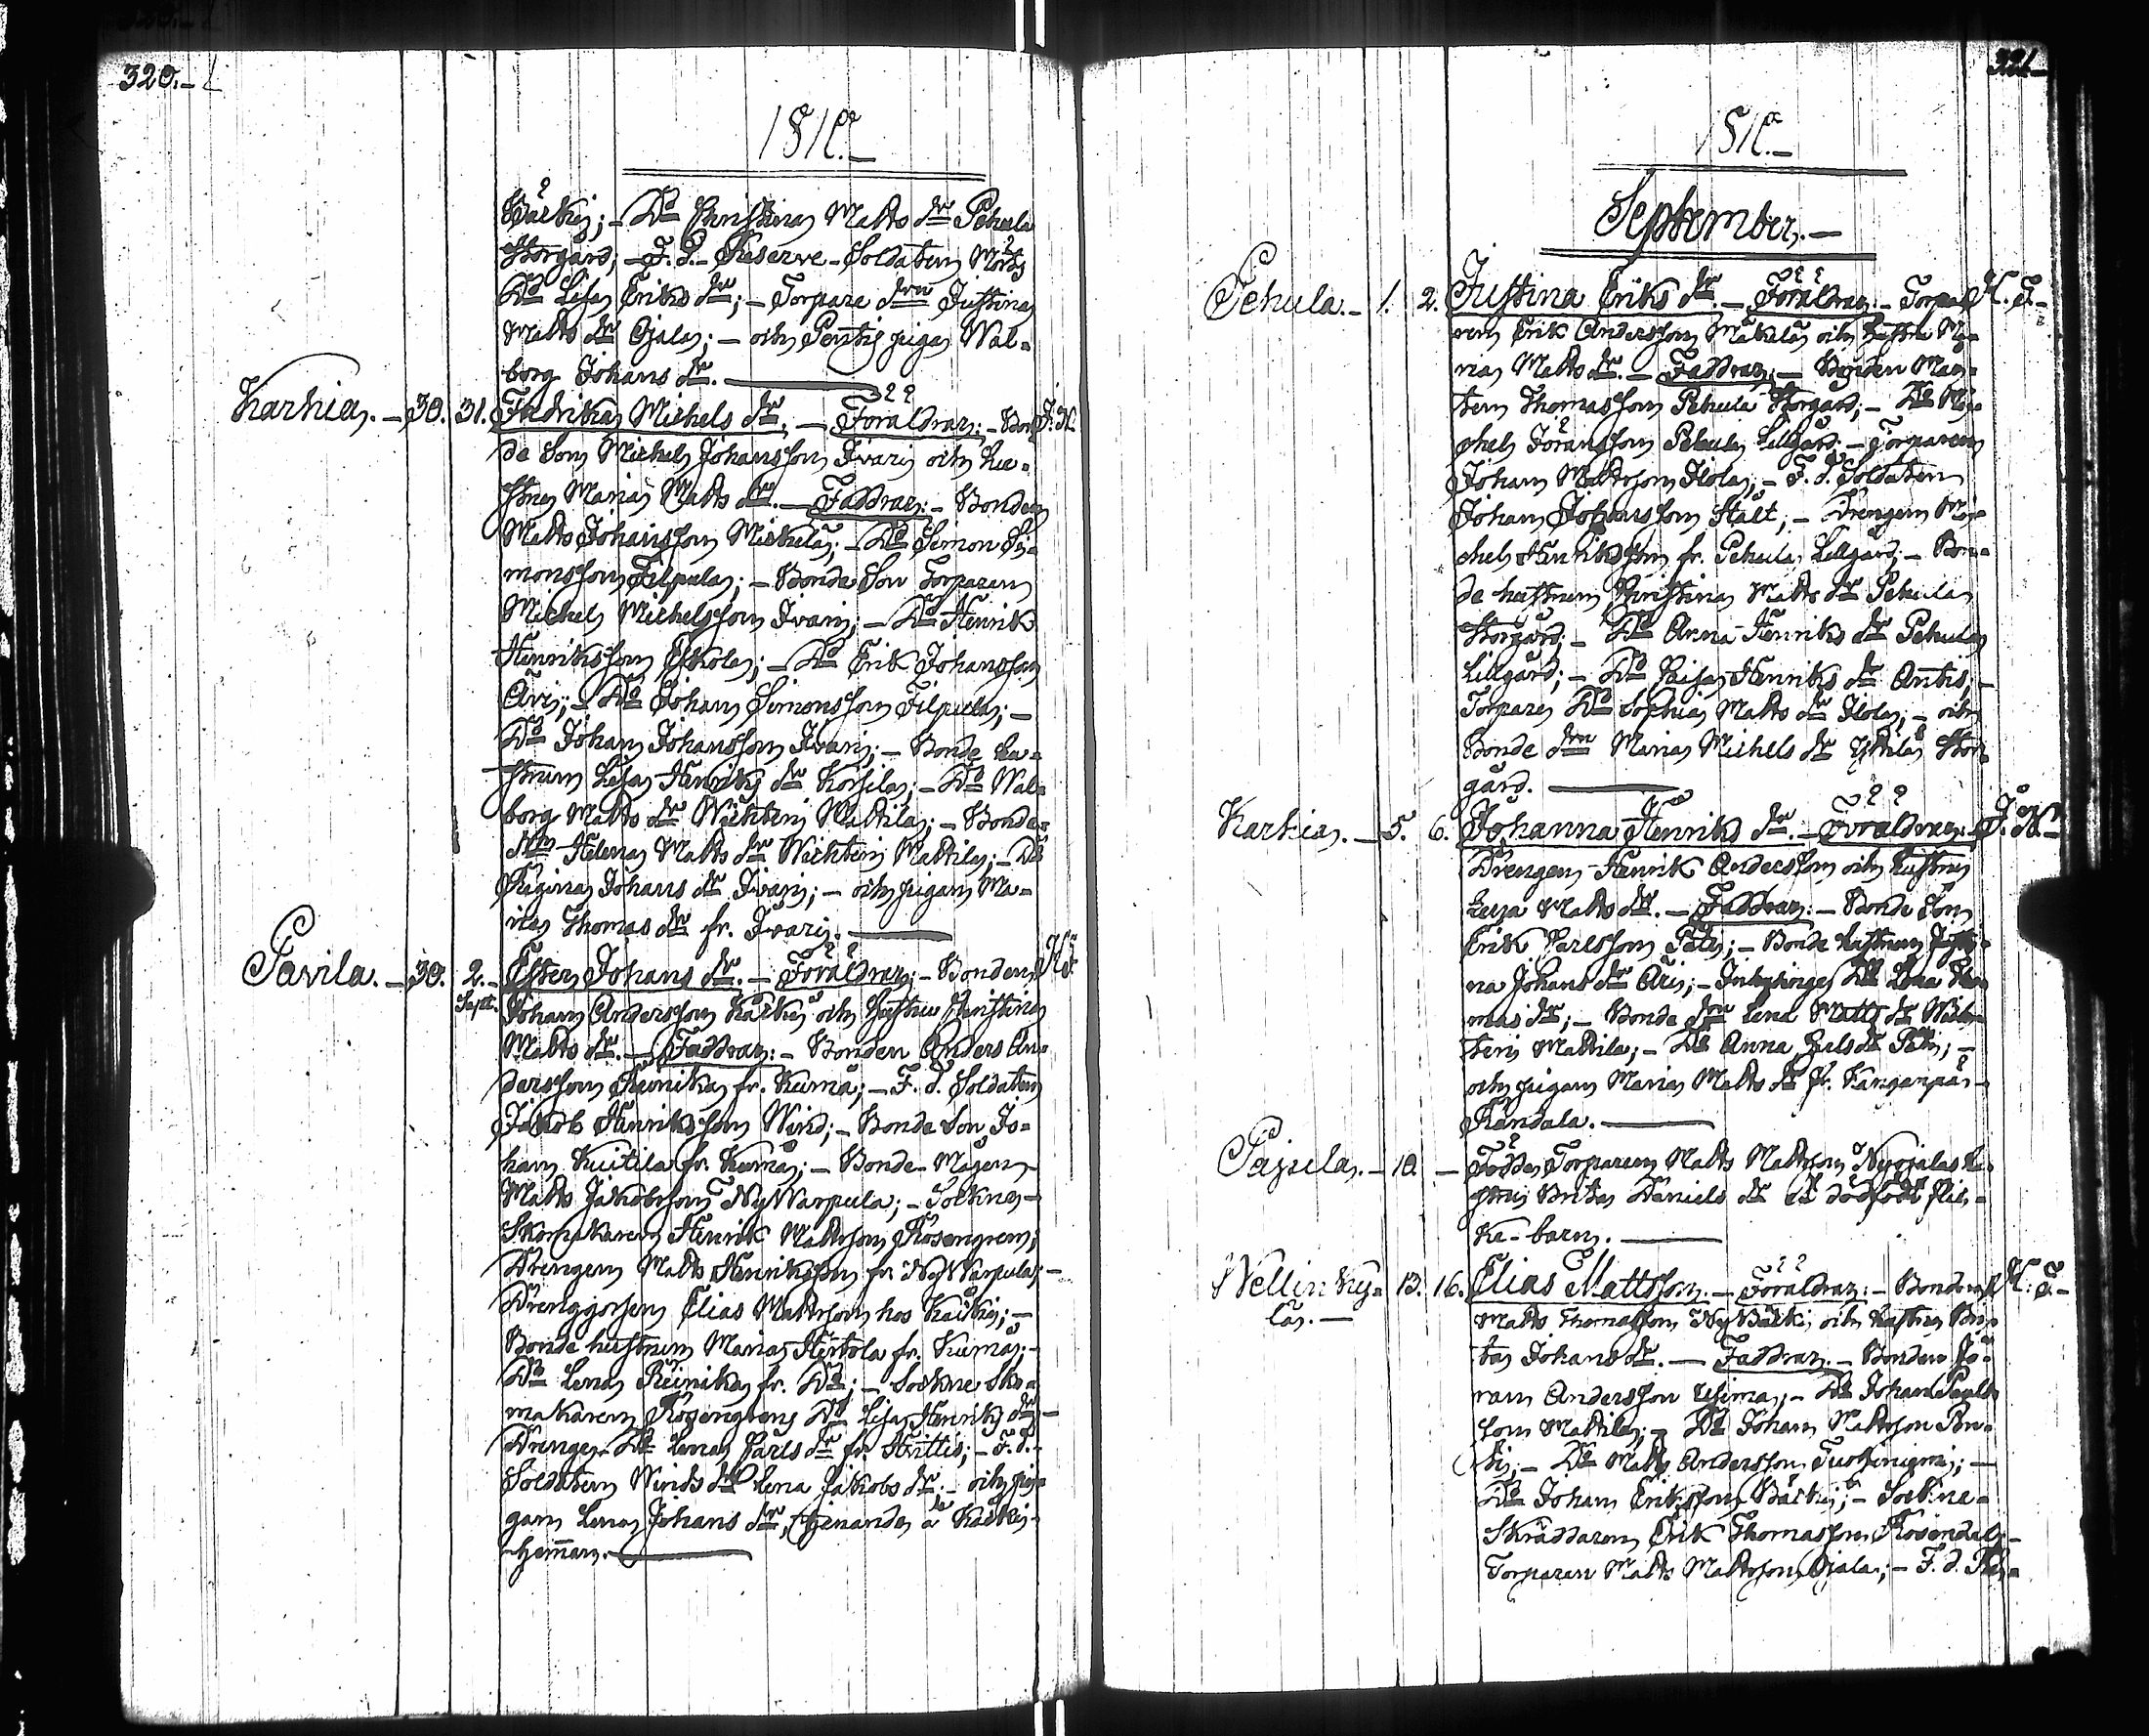 320.
1810.
Bärkij; – Do Christina Matts dr Pehula
Storgård; – F. d. Reserve-Soldaten
Do Lisa Eriks dr; – Torpare drn Justina
Matts dr Ojala; – och Pentti pigan Wal-
borg Johans dr.
Karhia. – 30. 31. Fredrika Michels dr. – Föräldrar: – Bon- J. N.
de Son Michel Johansson Iivari och hu-
strun Maria Matts dr. – Faddrar: – Bonden
Matts Johansson Mickelä; – Do Simon Si-
monsson Filpula; – Bonde Son Torparen
Michel Michelsson Iivari; – Do Henrik
Henriksson Eskola; – Do Erik Johansson
Äri; – Do Johan Simonsson Filpula; –
Do Johan Johansson Iivari; – Bonde hu-
strun Lisa Henriks dr Korsila; – Do Wal-
borg Matts dr Wichteri Mattila; – Bonde
drn Helena Matts dr Wichteri Mattila; – Do
Regina Johans dr Iivari; – och pigan Ma-
ria Thomas dr fr. Iivari.
Pavila. – 30. 2. Ester Johans dr. – Föräldrar: – Bonden
Sept. Johan Andersson Kärki och hustru Christina
Matts dr. – Faddrar: – Bonden Anders An-
dersson Reinika fr. Kumå; – F. d. Soldaten
Jakob Henriksson Wind; – Bonde Son Jo-
han Kuitila fr. Kumå; – Bonde Mågen
Matts Jakobsson NyWarpula; – Sockne-
Skomakaren Henrik Mattsson Rosengren;
Drengen Matts Henriksson fr. NyWarpula; –
Drenggossen Elias Mattsson hos Kärki; –
Bonde hustrun Maria Hertola fr. Kumå; –
Do Lena Reinika fr. Do; – Sockne Sko-
makaren Rosengrens Do Lisa Henriks dr; –
Drenge Do Lena Carls dr fr. Huittis; – F. d.
Soldaten Winds dr Lena Jakobs dr; – och pi-
gan Lena Johans dr, tjenande å Kärki
Hemman.
321.
1810.
September. –
Pehula. – 1. 2. Justina Eriks dr. – Föräldrar: – Torpa-
ren Erik Andersson Mäkelä och hustru Ma-
ria Matts dr. – Faddrar: – Bonden Mar-
ten Thomasson Pehula Storgård; – Do Mi-
chel Jöransson Pehula Lillgård; – Torparen
Johan Mattsson Ilola; – F. d. Soldaten
Johan Johansson Stält; – Drengen Mi-
chel Henriksson fr. Pehula Lillgård; – Bon-
de hustrun Christina Matts dr Pehula
Storgård; – Do Anna Henriks dr Pehula
Lillgård; – Do Caisa Henriks dr Antti; –
Torpare Do Sophia Matts dr Ilola; – och
Bonde drn Maria Michels dr Yttilä Stor-
gård.
Karhia. – 5. 6. Johanna Henriks dr. – Föräldrar: – J. N.
Drengen Henrik Andersson och hustru
Matts dr. – Faddrar: – Bonde Son
Erik Carlsson Päti; – Bonde hustrun Justi-
na Johans dr Äri; – Inhysinge Do Lena Tho-
mas dr; – Bonde drn Lena Matts dr Wich-
teri Mattila; – Do Anna Carls dr Päti; –
och pigan Maria Matts dr fr. Kanganpää
Randala.
Pajula. – 10. – Födde Torparen Matts Mattsson Nyojalas hu-
stru Brita Daniels dr et dödfödt flic-
ke-barn.
Wellinky- 13. 16. Elias Mattsson. – Föräldrar: – Bonden
lä. – Matts Thomasson NyBärki och hustru Bri-
ta Johans dr. – Faddrar: – Bonden Jö-
ran Andersson Uhima; – Do Johan Pauls-
son Mattila; – Do Johan Mattsson Pen-
ti; – Do Matts Andersson Tuohiniemi; –
Do Johan Eriksson Bärki; – Sockne-
Skräddaren Erik Thomasson Rosendal; –
Torparen Matts Mattsson Ojala; – F. d. Re-